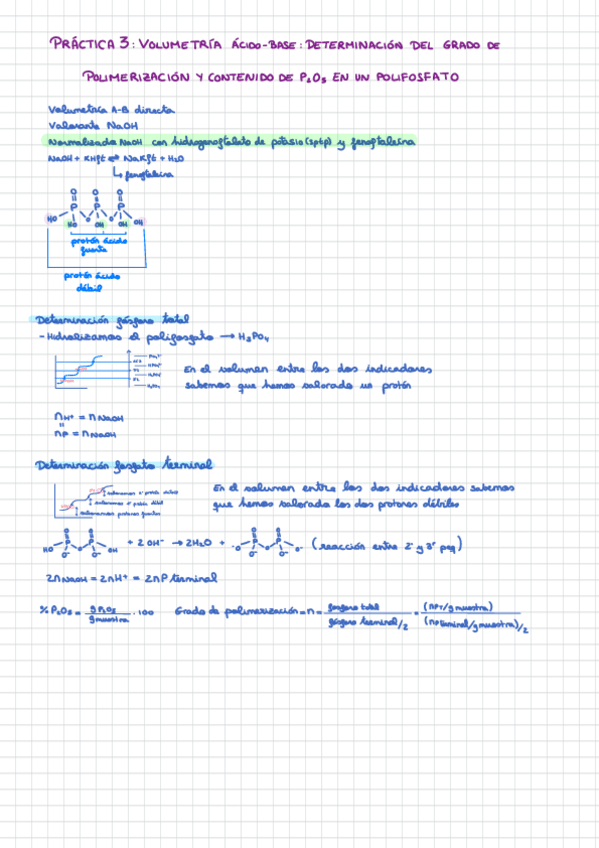 PRÁCTICA 3: VOLUMETRÍA ÁCIDO-BASE: DETERMINACIÓN DEL GRADO DE
POLIMERIZACIÓN Y CONTENIDO DE P₂O₅ EN UN POLIFOSFATO
Volumetría A-B directa
Valorante NaOH
Normalizada NaOH con hidrogenoftalato de potasio (sptp) y fenoftaleína
NaOH + KHft ⇌ NaKft + H₂O
↳ fenoftaleína
O O O
P P P
HO O O OH
HO OH OH
protón ácido
fuerte
protón ácido
débil
Determinación fósforo total
- Hidrolizamos el polifosfato → H₃PO₄
En el volumen entre los dos indicadores
sabemos que hemos valorado un protón
nH⁺ = nNaOH
=
nP = nNaOH
Determinación fosfato terminal
En el volumen entre los dos indicadores sabemos
que hemos valorado los dos protones débiles
O O
HO P O P OH + 2 OH⁻ → 2H₂O + ⁻O P O P O⁻ (reacción entre 2º y 3º peq)
O⁻ O⁻
2nNaOH = 2nH⁺ = 2nP terminal
% P₂O₅ = g P₂O₅ / g muestra · 100 Grado de polimerización = n = fósforo total / fósforo terminal/2 = (nPT/g muestra) / (nP terminal/g muestra)/2